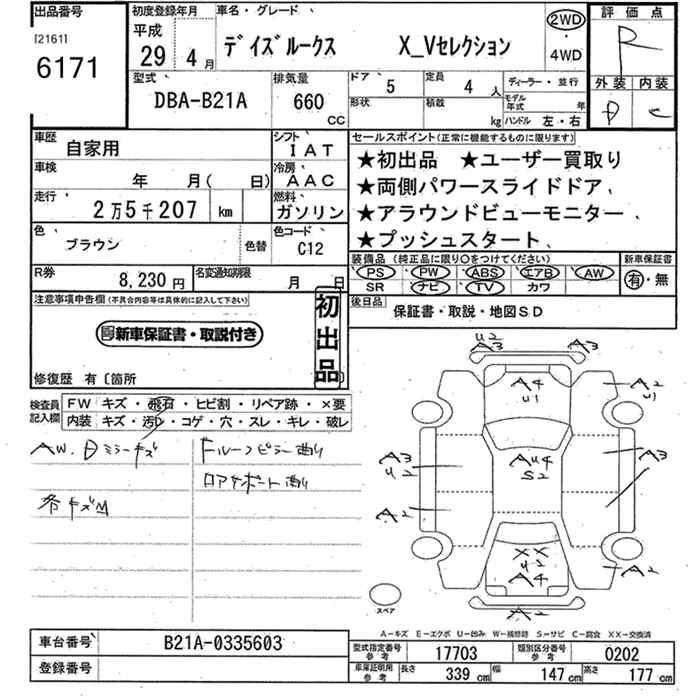 出品番号
[2161]
6171
初度登録年月
平成
29 4月
車名・グレード
デイズルークス X_Vセレクション
2WD
・
4WD
評価点
R
外装 内装
D C
型式
DBA-B21A
排気量
660
CC
ドア
5
定員
4 人
ディーラー・並行
形状
積載
kg
モデル年式 年
ハンドル 左・右
車歴
自家用
シフト
IAT
車検
年 月( 日)
冷房
AAC
走行
2万5千207 km
燃料
ガソリン
色
ブラウン
色替
色コード
C12
R券
8,230円
名変通知期限
月 日
セールスポイント(正常に機能するものに限ります)
★初出品 ★ユーザー買取り
★両側パワースライドドア、
★アラウンドビューモニター、
★プッシュスタート、
装備品 (純正品に限り○をつけてください)
PS PW ABS エアB AW
SR ナビ TV カワ
新車保証書
有・無
後日品
保証書・取説・地図SD
注意事項申告欄(不具合内容等は具体的に記入して下さい)
新車保証書・取説付き
初出品
修復歴 有〔箇所
検査員
記入欄
FW キズ・飛石・ヒビ割・リペア跡・×要
内装 キズ・汚レ・コゲ・穴・スレ・キレ・破レ
AW. Dミラーキズ
各キズM
U2
A3
A3
A4
U1
A2
U1
A3
U2
AU4
S2
A3
A2
XX
U2
A4
A2
A2
スペア
A－キズ E－エクボ U－凹み W－補修跡 S－サビ C－腐食 XX－交換済
車台番号
B21A-0335603
登録番号
型式指定番号
参考
17703
類別区分番号
参考
0202
車庫証明用
参考
長さ
339 cm
幅
147 cm
高さ
177 cm